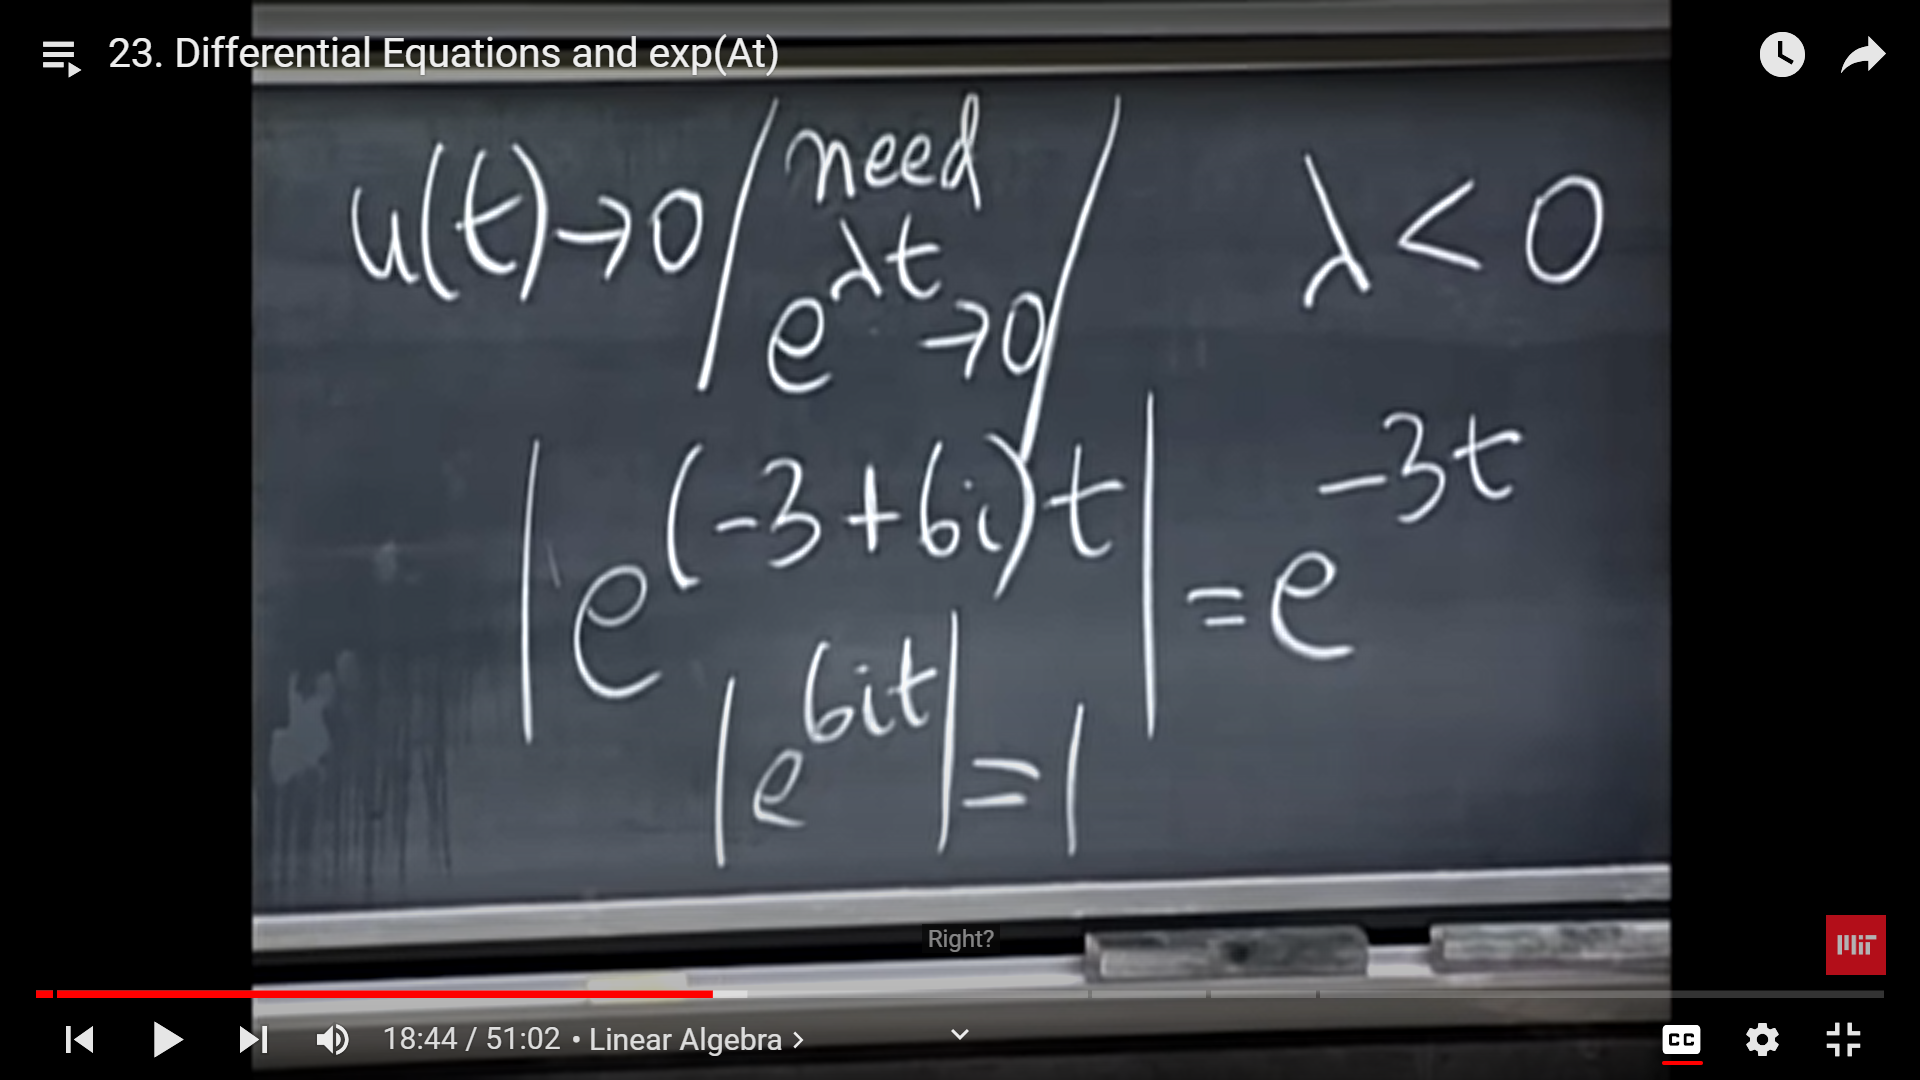 23. Differential Equations and exp(At)
u(t)→0 / need e^{λt}→0 / λ < 0
|e^{(-3+6i)t}| = e^{-3t}
|e^{6it}| = 1
Right?
MIT
18:44 / 51:02 • Linear Algebra >
CC